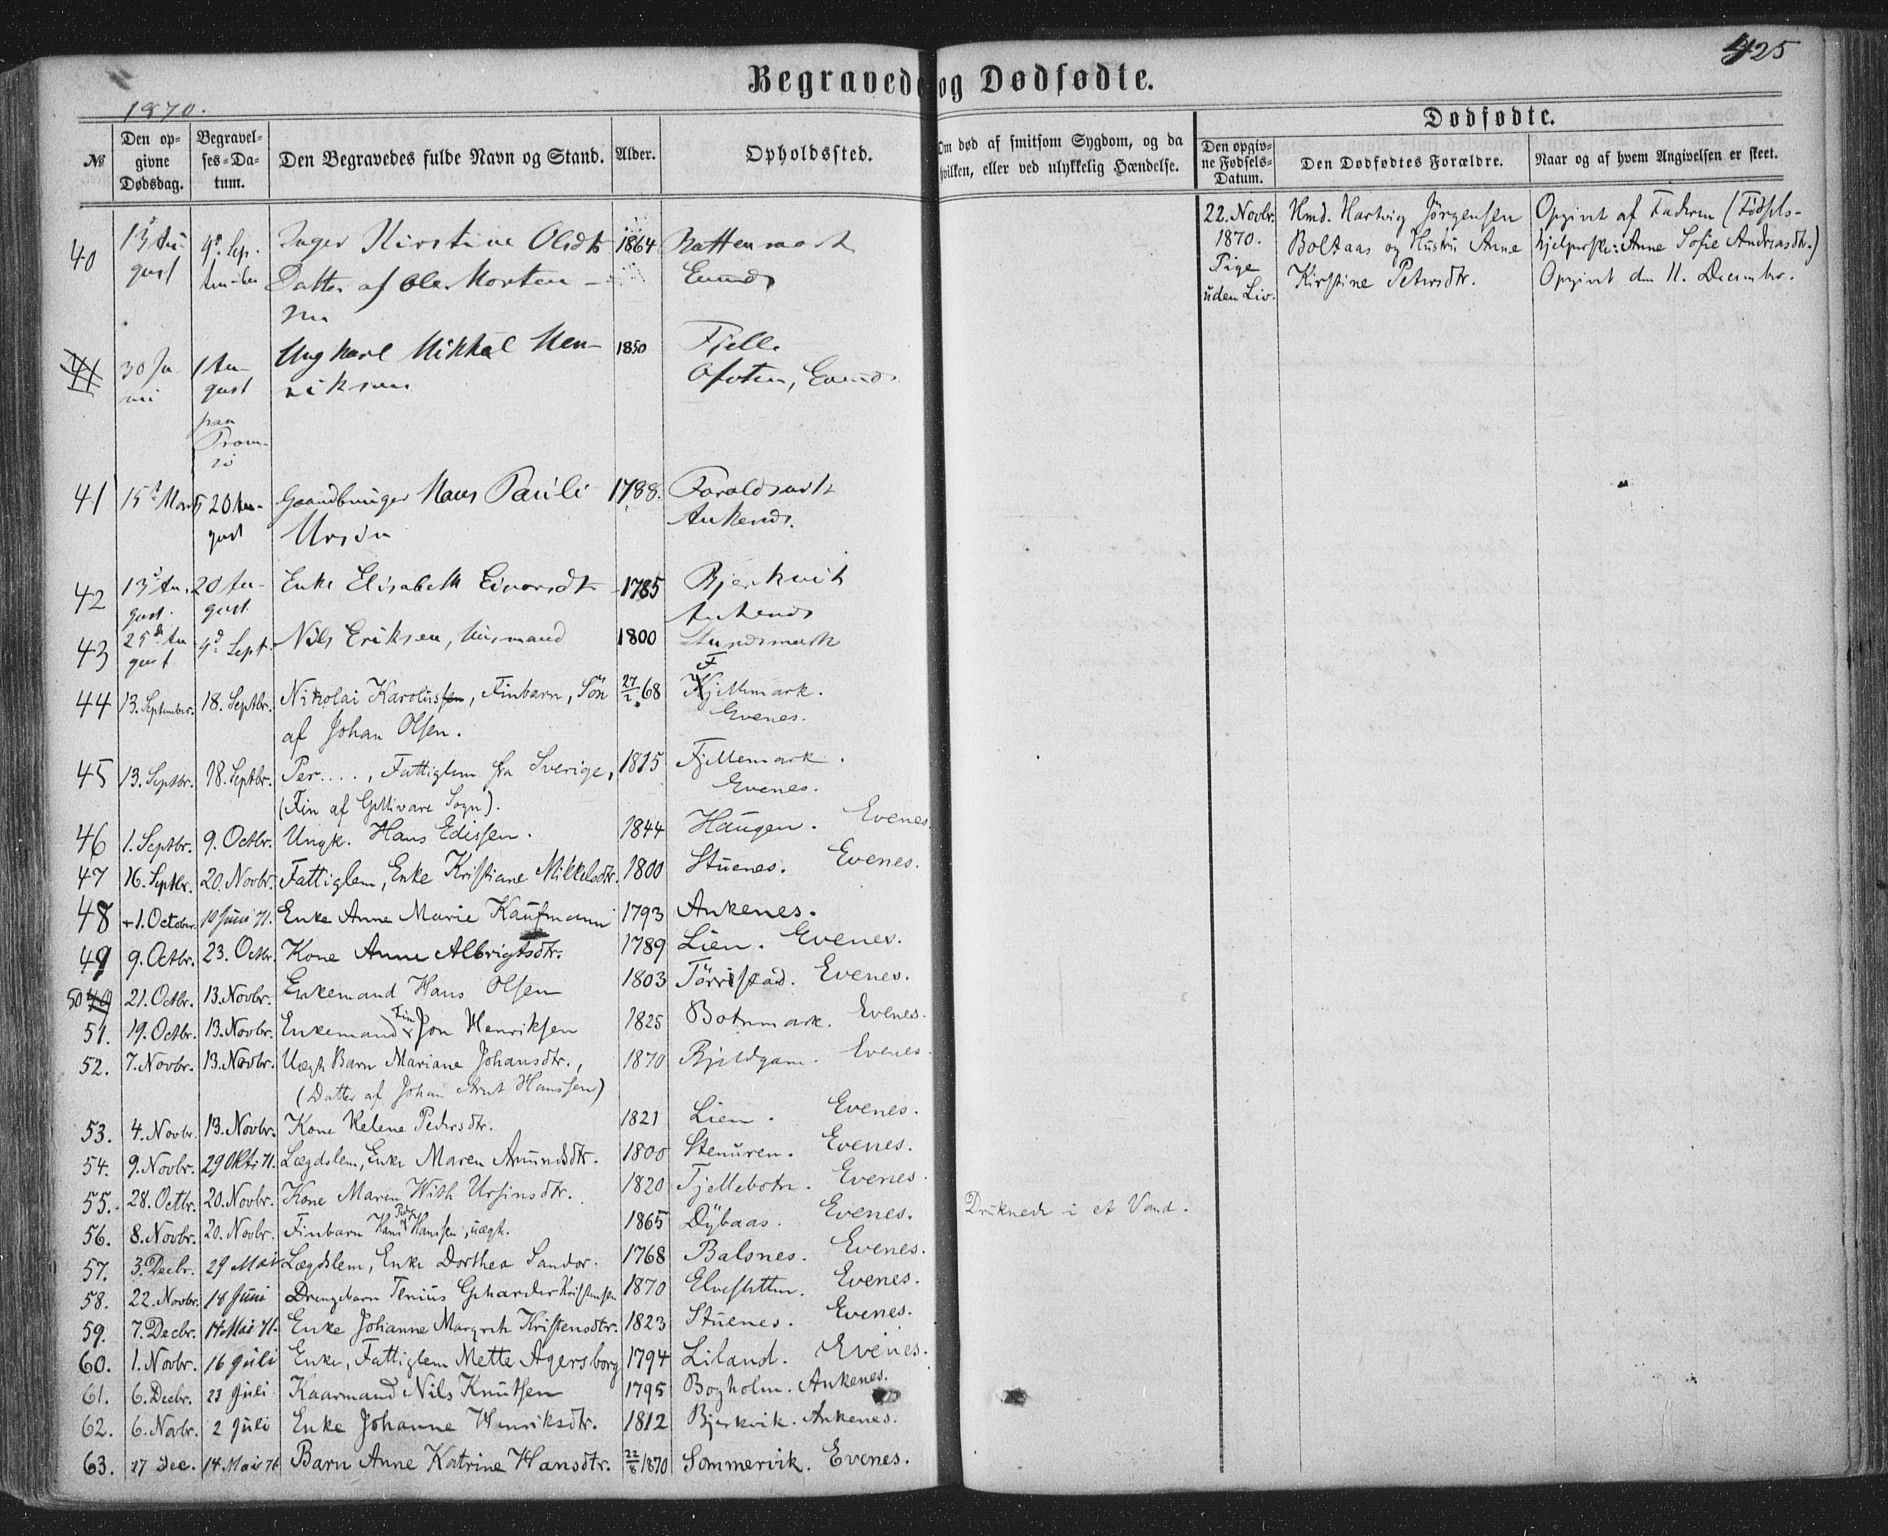 425
Begravede og Dødfødte.
1870.
Dødfødte.
№
Den opgivne Dødsdag.
Begravelses-Datum.
Den Begravedes fulde Navn og Stand.
Alder.
Opholdssted.
Om død af smitsom Sygdom, og da hvilken, eller ved ulykkelig Hændelse.
Den opgivne Fødsels-Datum.
Den Dødfødtes Forældre.
Naar og af hvem Angivelsen er skeet.
22. Novbr. Hmd. Hartvig Jørgensen Opgivet af Faderen (Fødsels-
1870. Boltaas og Hustru Anne hjelperske: Anne Sofie Andreasdtr.)
Pige Kirstine Petersdtr. Opgivet den 11. December.
uden Liv.
40 13 Au- 4d. Sep- Inger Kirstine Olsdtr 1864
gust tember Datter af Ole Morten- Evenes
sen
41 30 Ju 1 Au- Ungkarl Mikkal Hen- 1850 Fjelle
ni gust riksen Ofoten, Evenes
paa
Trom-
sö
41 15d Mars 20 Au- Gaardbruger Hans Pauli 1788. Foroldsvik
gust Ursin Ankenes.
42 13d Au- 20 Au- Enke Elisabeth Eivorsdtr 1785 Bjerkvik
gust. gust Ankenes
43 25de Au 4d Sept. Nils Eriksen, Husmand 1800
gust
44 13. September. 18. Septbr. Nikolai Karolussen, Finbarn, Sön 27/2 68 Fjellmark.
af Johan Olsen. Evenes.
45 13. Septbr. 18. Septbr. Per...., Fattiglem fra Sverige, 1815 Fjellemark.
(Fin af Gellivare Sogn). Evenes.
46 1. Septbr. 9. Octbr. Ungk. Hans Edissen. 1844 Haugen. Evenes.
47 16. Septbr. 20. Novbr. Fattiglem, Enke Kristiane Mikkelsdtr. 1800 Stuenes. Evenes.
48 1. October. 10 Juni 71. Enke Anne Marie Kaufmann 1793 Ankenes.
49 9. Octbr. 23. Octbr. Kone Anne Albrigtsdtr. 1789 Lien. Evenes.
50 21. Octbr. 13. Novbr. Enkemand Hans Olsen 1803 Törristad. Evenes.
51. 19. Octbr. 13. Novbr. Enkemand Fin Jon Henriksen 1825 Botnmark. Evenes.
52. 7. Novbr. 13. Novbr. Uægt Barn Mariane Johansdtr., 1870 Evenes.
(Datter af Johan Arnt Hanssen)
53. 4. Novbr. 13. Novbr. Kone Helene Pedersdtr. 1821 Lien. Evenes.
54. 9. Novbr. 29 Okt 71. Lægdslem, Enke Maren Amundsdtr. 1800 Stenuren. Evenes.
55. 28. Octbr. 20. Novbr. Kone Maren With Ursinsdtr. 1820 Fjellebotn. Evenes.
56. 8. Novbr. 20. Novbr. Finbarn Hans Peder Hanssen, uægt. 1865 Dybaas. Evenes. Druknede i et Vand.
57. 3. Decbr. 29 Mai Lægdslem, Enke Dorthea Sandor. 1768 Balsnes. Evenes.
58. 22. Novbr. 18 Juni Drengebarn Tenius Gerharder Kristensen 1870 Elvesletten. Evenes.
59. 7. Decbr. 14 Mai 71. Enke Johanne Margreth Kristensdtr. 1823 Stuenes. Evenes.
60. 1. Novbr. 16 Juli Enke, Fattiglem Mette Agersborg 1794 Liland. Evenes.
61. 6. Decbr. 23 Juli Kaarmand Nils Knutsen 1795 Bogholm. Ankenes.
62. 6. Novbr. 2 Juli Enke Johanne Henriksdtr. 1812 Bjerkvik. Ankenes.
63. 17 Dec. 14 Mai 71 Barn Anne Katrine Hansdtr. 22/8 1870 Sommervik. Evenes.